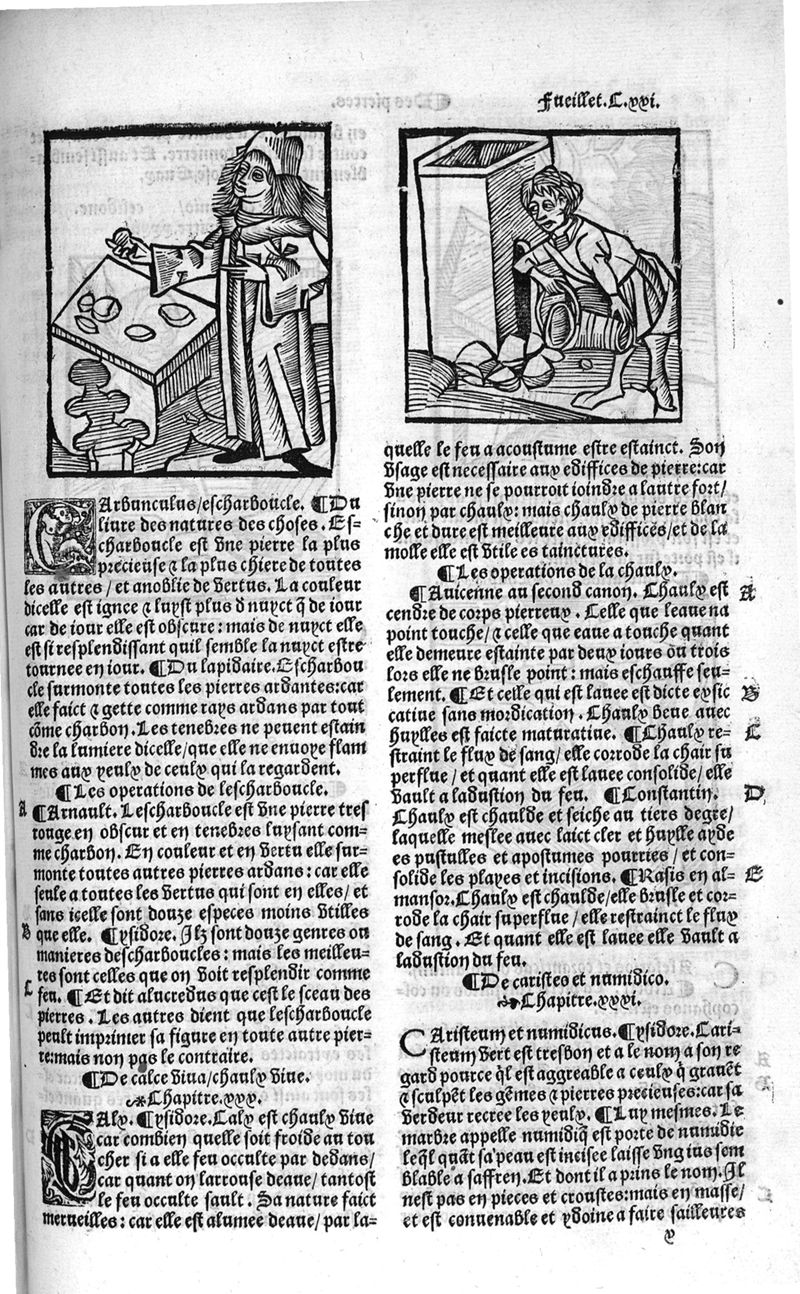 Fueillet.C.xxi.
CArbunculus/escharboucle. ¶Du
liure des natures des choses. Es-
charboucle est vne pierre la plus
precieuse ⁊ la plus chiere de toutes
les autres / et anoblie de vertus. La couleur
dicelle est ignee ⁊ luyst plus d̄ nuyct q̄ de iour
car de iour elle est obscure: mais de nuyct elle
est si resplendissant quil semble la nuyct estre
tournee en iour. ¶Du lapidaire. Escharbou
cle surmonte toutes les pierres ardantes:car
elle faict ⁊ gette comme rays ardans par tout
cōme charbon. Les tenebres ne peuent estain
dre la lumiere dicelle/que elle ne enuoye flam
mes aux yeulx de ceulx qui la regardent.
¶Les operations de lescharboucle.
A
¶Arnault. Lescharboucle est vne pierre tres
rouge en obscur et en tenebres luysant com-
me charbon. En couleur et en vertu elle sur-
monte toutes autres pierres ardans: car elle
seule a toutes les vertus qui sont en elles/ et
sans icelle sont douze especes moins vtilles
B
que elle. ¶ysidore. Ilz sont douze genres ou
manieres descharboucles: mais les meilleu-
res sont celles que on voit resplendir comme
C
feu. ¶Et dit alucredus que cest le sceau des
pierres. Les autres dient que lescharboucle
peult imprimer sa figure en toute autre pier-
re:mais non pas le contraire.
¶De calce viua/chaulx viue.
Chapitre.xxx.
CAlx. ¶ysidore. Calx est chaulx viue
car combien quelle soit froide au tou
cher si a elle feu occulte par dedans/
car quant on larrouse deaue/ tantost
le feu occulte sault. Sa nature faict
merueilles: car elle est alumee deaue/ par la-
quelle le feu a acoustume estre estainct. Son
vsage est necessaire aux ediffices de pierre:car
vne pierre ne se pourroit ioindre a lautre fort/
sinon par chaulx: mais chaulx de pierre blan
che et dure est meilleure aux ediffices/et de la
molle elle est vtile es tainctures.
¶Les operations de la chaulx.
¶Auicenne au second canon. Chaulx est
A
cendre de corps pierreux. Celle que leaue na
point touche/⁊ celle que eaue a touche quant
elle demeure estainte par deux iours ou trois
lors elle ne brusle point: mais eschauffe seu-
lement. ¶Et celle qui est lauee est dicte exsic
B
catiue sans mordication. Chaulx beue auec
huylles est faicte maturatiue. ¶Chaulx re-
C
straint le flux de sang/ elle corrode la chair su
perflue / et quant elle est lauee consolide/ elle
vault a ladustion du feu. ¶Constantin.
D
Chaulx est chaulde et seiche au tiers degre/
laquelle meslee auec laict cler et huylle ayde
es pustulles et apostumes pourries / et con-
solide les playes et incisions. ¶Rasis en al-
E
mansor.Chaulx est chaulde/elle brusle et cor-
rode la chair superflue / elle restrainct le flux
de sang. Et quant elle est lauee elle vault a
ladustion du feu.
¶De caristes et numidico.
Chapitre.xxxi.
CAristeum et numidicus. ¶ysidore. Cari-
steum vert est tresbon et a le nom a son re
gard pource q̄l est aggreable a ceulx q̄ grauēt
⁊ sculpēt les gēmes ⁊ pierres precieuses:car sa
verdeur recree les yeulx. ¶Luy mesmes. Le
marbre appelle numidiq̄ est porte de numidie
leq̄l quāt sa peau est incisee laisse vng ius sem
blable a saffren. Et dont il a prins le nom. Il
nest pas en pieces et croustes:mais en masse/
et est conuenable et ydoine a faire sailleures
y